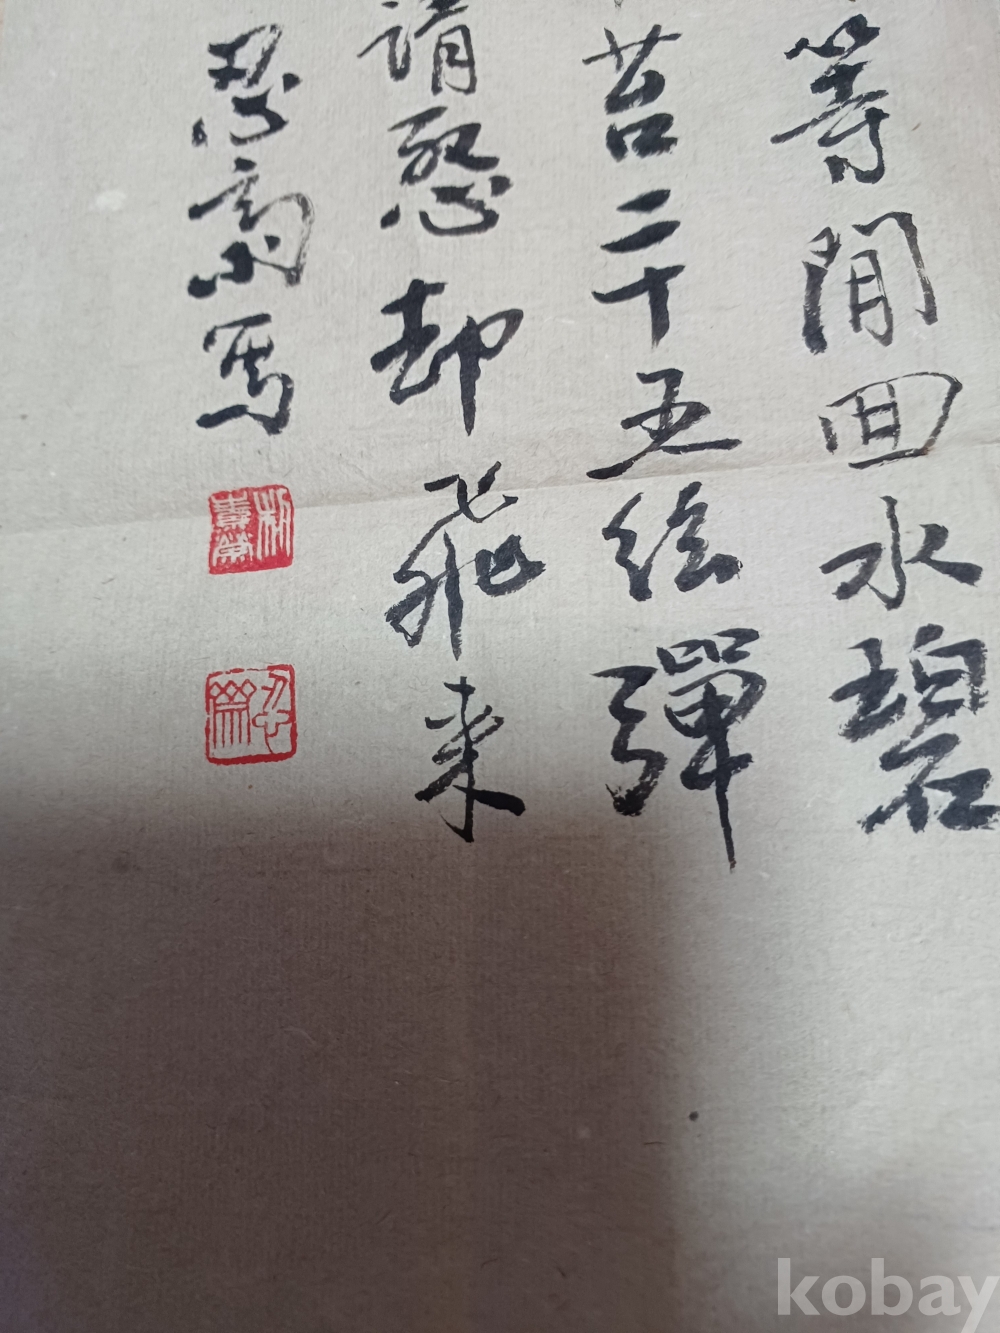 等閒回水碧
苔二十五絃彈
清怨却飛来
忍齋寫
忍齋
kobay